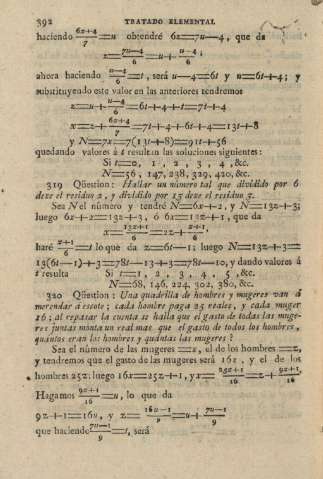 392 TRATADO ELEMENTAL
haciendo (6z+4)/7=u obtendré 6z=7u—4, que da
z=(7u—4)/6=u+(u—4)/6;
ahora haciendo (u—4)/6=t, será u—4=6t y u=6t+4; y
substituyendo este valor en las anteriores tendremos
z=u+(u—4)/6=6t+4+t=7t+4
x=z+(6z+4)/7=7t+4+6t+4=13t+8
y N=7x=7(13t+8)=91t+56
quedando valores á t resultan las soluciones siguientes:
Si t=0, 1, 2, 3, 4, &c.
N=56, 147, 238, 329, 420, &c.
319 Qüestion: Hallar un número tal que dividido por 6
dexe el residuo 2, y dividido por 13 dexe el residuo 3.
Sea N el número y tendré N=6x+2, y N=13z+3;
luego 6x+2=13z+3, ó 6x=13z+1, que da
x=(13z+1)/6=2z+(z+1)/6,
haré (z+1)/6=t lo que da z=6t—1; luego N=13z+3=
13(6t—1)+3=78t—13+3=78t—10, y dando valores á
t resulta Si t=1, 2, 3, 4, 5, &c.
N=68, 146, 224, 302, 380, &c.
320 Qüestion: Una quadrilla de hombres y mugeres van á
merendar á escote; cada hombre paga 25 reales, y cada muger
16; al repasar la cuenta se halla que el gasto de todas las muge-
res juntas monta un real mas que el gasto de todos los hombres,
quántos eran los hombres y quántas las mugeres?
Sea el número de las mugeres =x, el de los hombres =z,
y tendremos que el gasto de las mugeres será 16x, y el de los
hombres 25z: luego 16x=25z+1, y x=(25z+1)/16=z+(9z+1)/16.
Hagamos (9z+1)/16=u, lo que da
9z+1=16u, y z=(16u—1)/9=u+(7u—1)/9
que haciendo (7u—1)/9=t, será